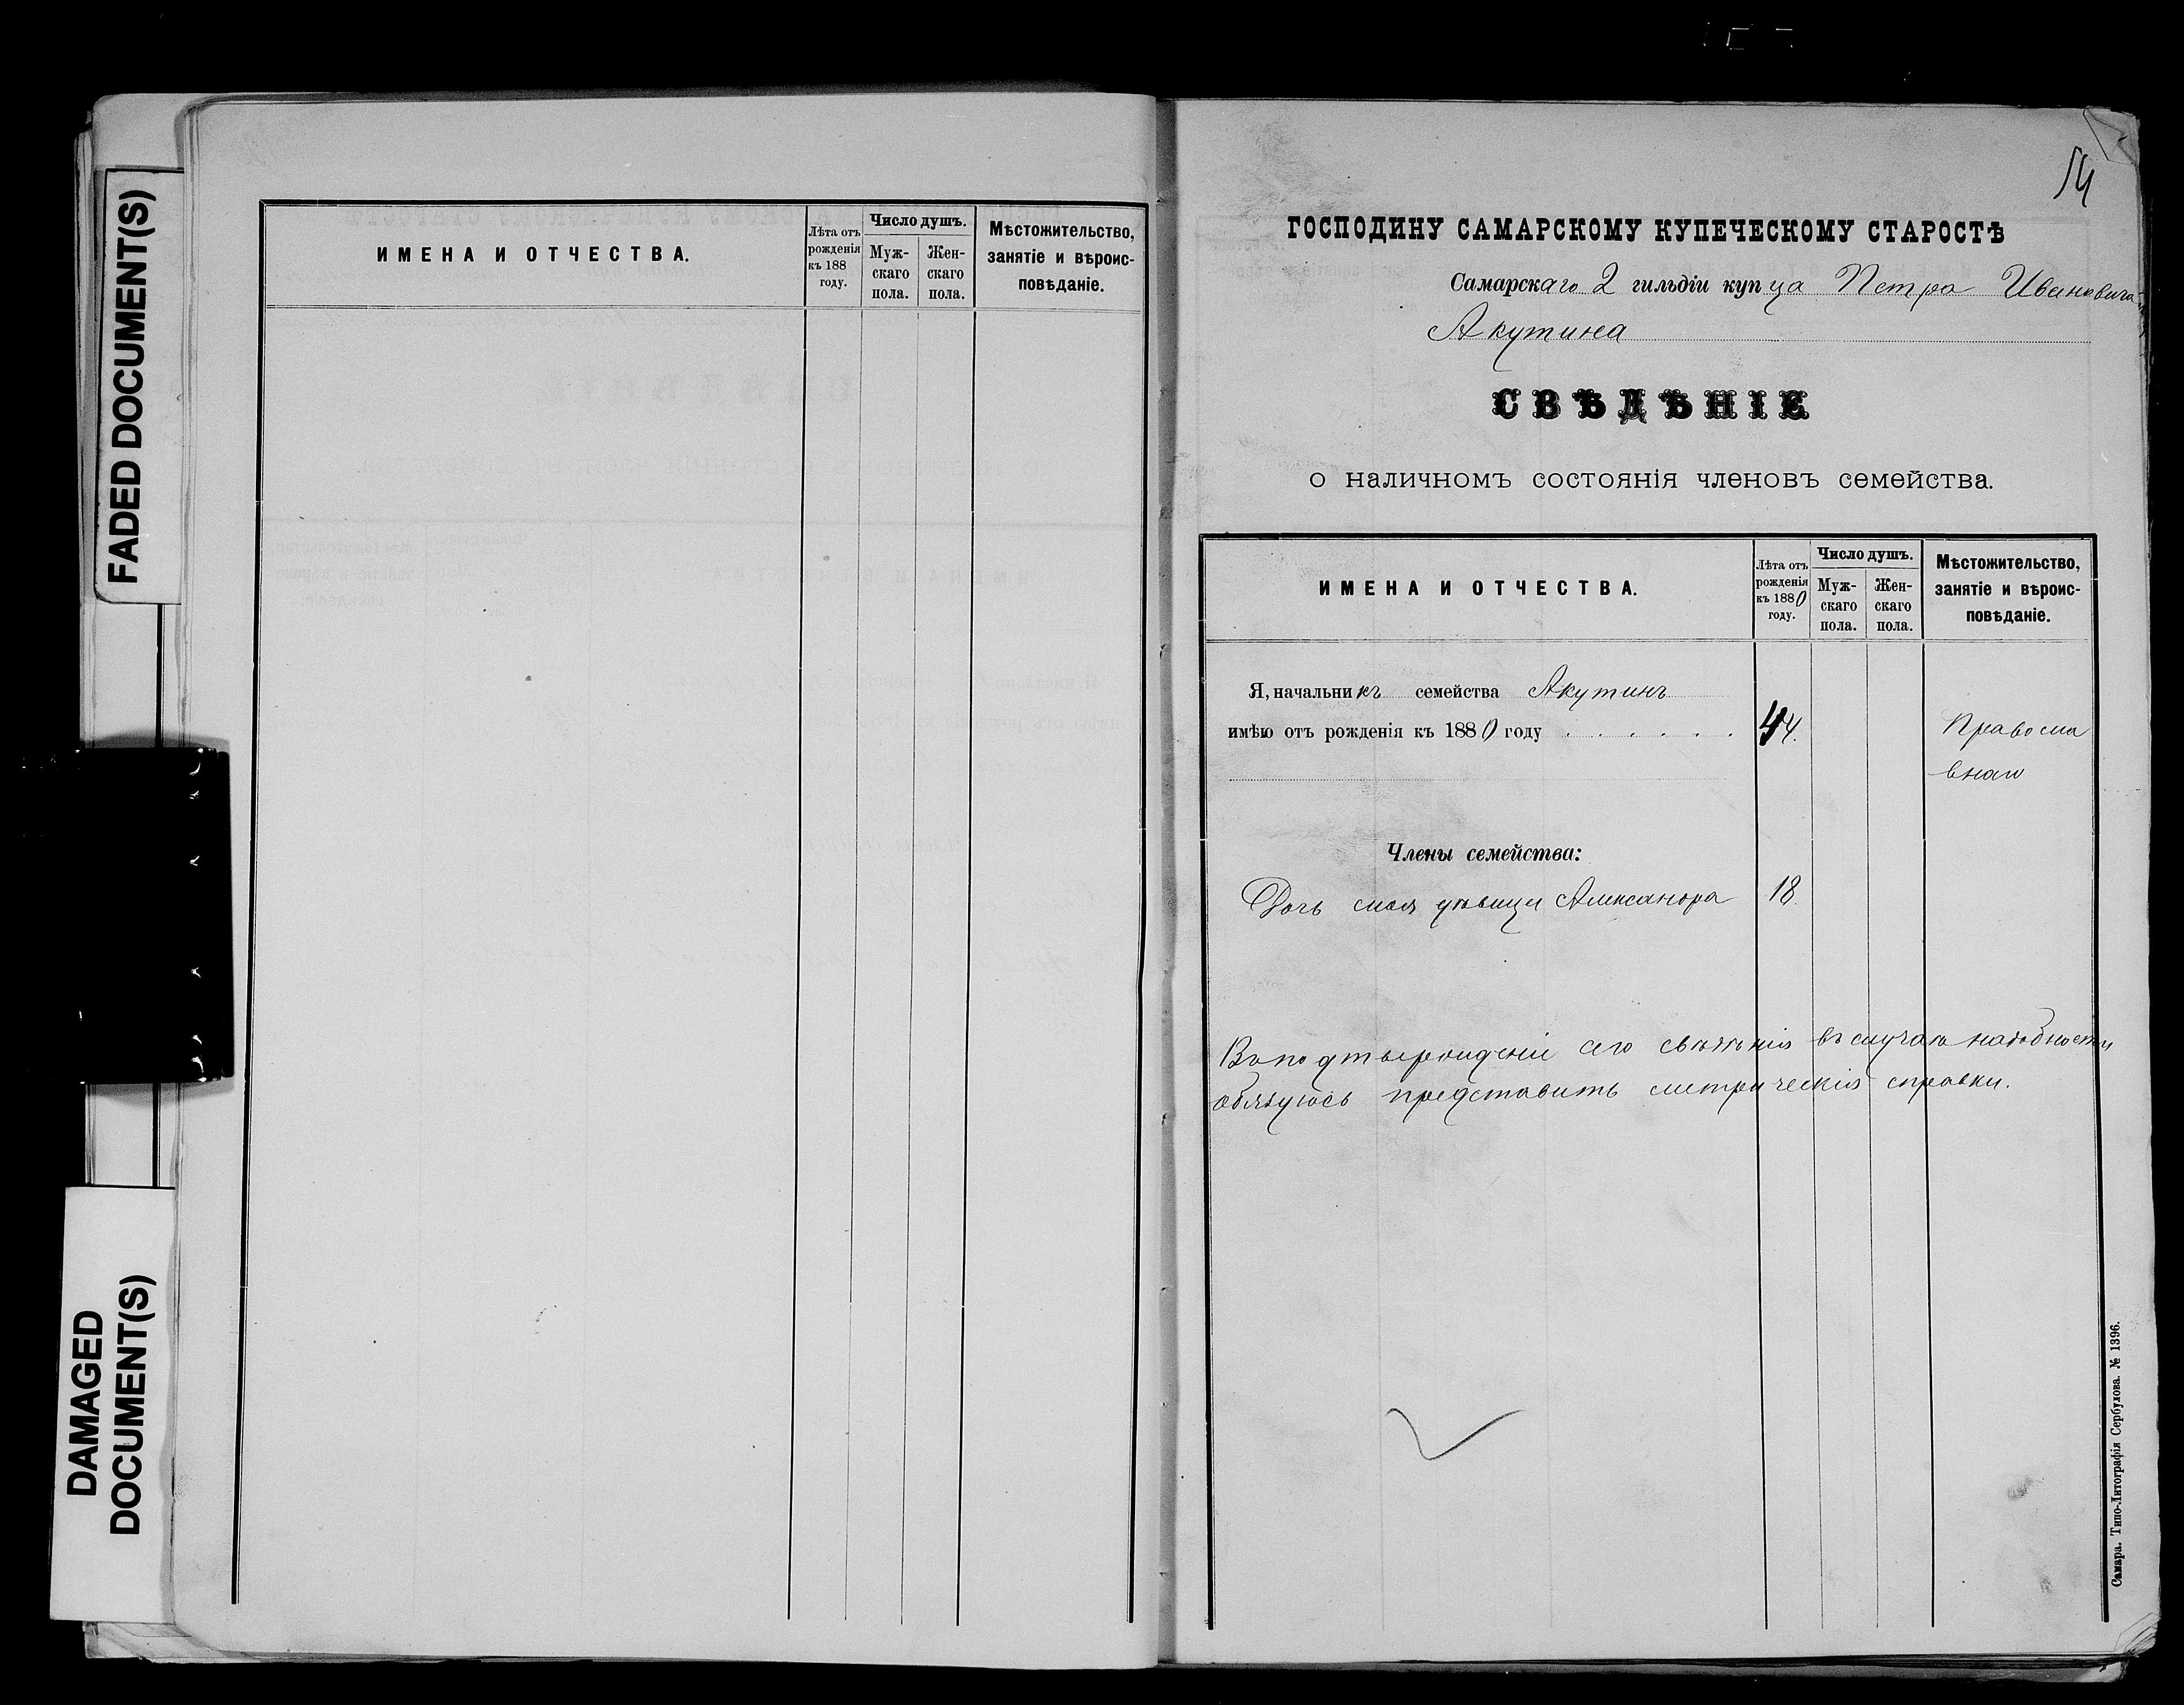 FADED DOCUMENT(S)
DAMAGED
DOCUMENT(S)
ИМЕНА И ОТЧЕСТВА.
Лѣта отъ
рожденія
къ 188
году.
Число душъ.
Муж-
скаго
пола.
Жен-
скаго
пола.
Мѣстожительство,
занятіе и вѣроис-
повѣданіе.
54
ГОСПОДИНУ САМАРСКОМУ КУПЕЧЕСКОМУ СТАРОСТѢ
Самарскаго 2 гильдіи купца Петра Ивановича
Акутина
СВѢДѢНІЕ
о наличномъ состоянія членовъ семейства.
ИМЕНА И ОТЧЕСТВА.
Лѣта отъ
рожденія
къ 1880
году.
Число душъ.
Муж-
скаго
пола.
Жен-
скаго
пола.
Мѣстожительство,
занятіе и вѣроис-
повѣданіе.
Я, начальникъ семейства Акутинъ
имѣю отъ рожденія къ 1880 году . . . . . . 44. Правосла
внаго
Члены семейства:
Дочь моя дѣвица Александра 18.
Въ подтвержденіе сего свѣдѣнія въ случаѣ надобности
обязуюсь представить метрическія справки.
Самара. Типо-Литографія Сербулова. № 1396.